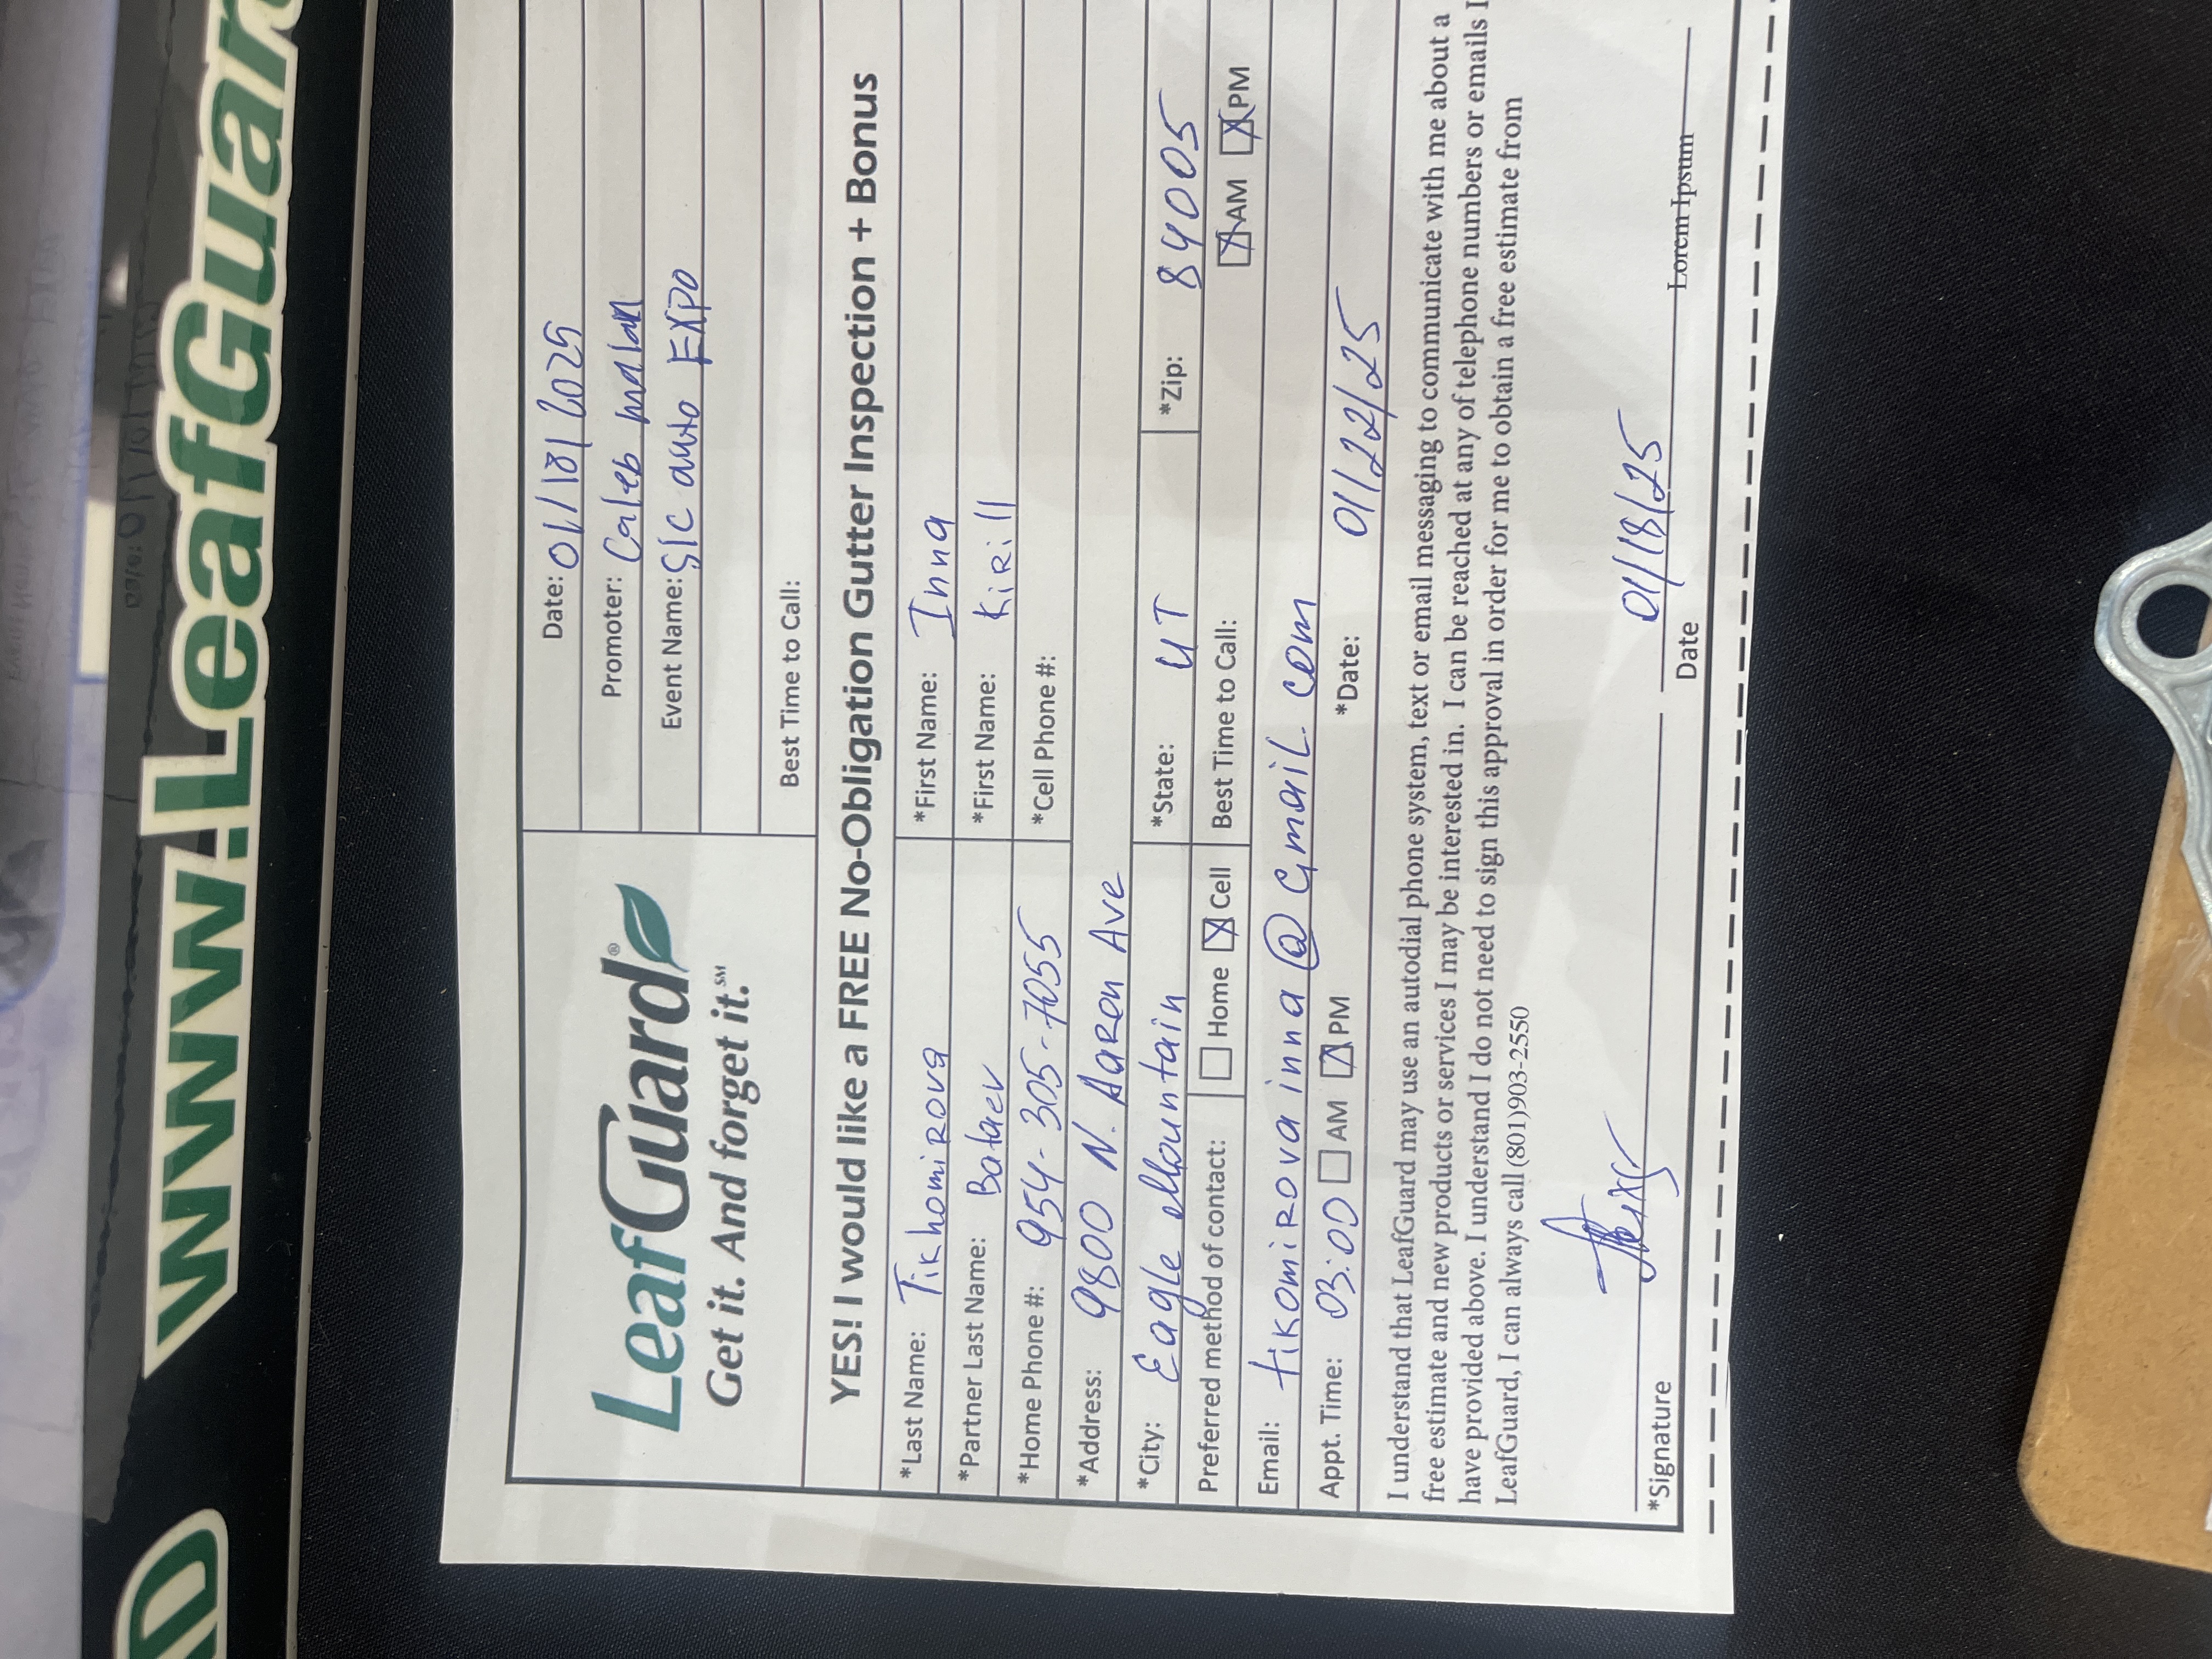 www.LeafGuar
LeafGuard®
Get it. And forget it.℠
Date: 01/18/2025
Promoter: Caleb malan
Event Name: Slc auto EXPO
Best Time to Call:
YES! I would like a FREE No-Obligation Gutter Inspection + Bonus
*Last Name: Tikhomirova *First Name: Inna
*Partner Last Name: Bataev *First Name: Kirill
*Home Phone #: 954-305-7055 *Cell Phone #:
*Address: 9800 N. Aaron Ave
*City: Eagle Mountain *State: UT *Zip: 84005
Preferred method of contact: Home Cell Best Time to Call: AM PM
Email: tikomirovainna@Gmail.com
Appt. Time: 03:00 AM PM *Date: 01/22/25
I understand that LeafGuard may use an autodial phone system, text or email messaging to communicate with me about a
free estimate and new products or services I may be interested in. I can be reached at any of telephone numbers or emails I
have provided above. I understand I do not need to sign this approval in order for me to obtain a free estimate from
LeafGuard, I can always call (801)903-2550
01/18/25
*Signature Date Lorem Ipsum